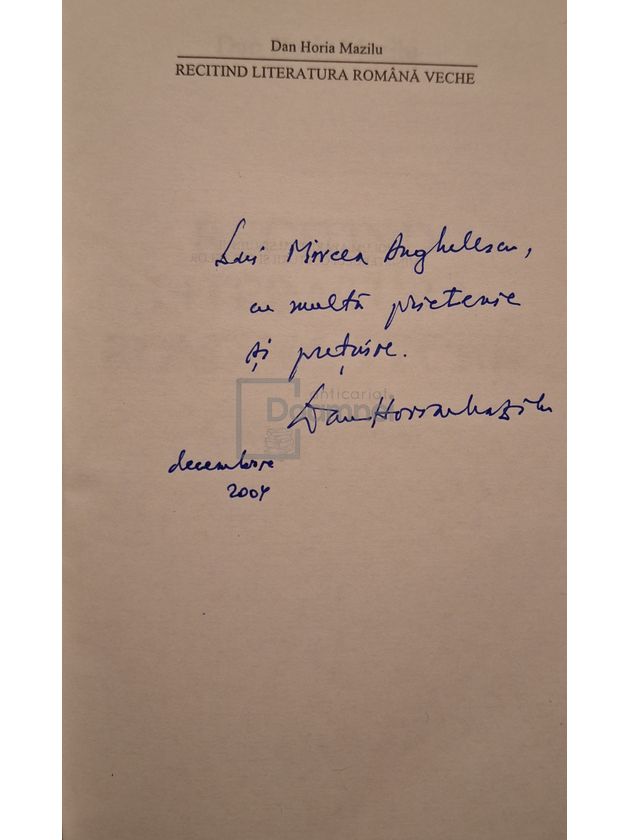 Dan Horia Mazilu
RECITIND LITERATURA ROMÂNĂ VECHE
Lui Mircea Anghelescu,
cu multă prietenie
și prețuire.
anticariat
Dan Horia Mazilu
decembrie
2004